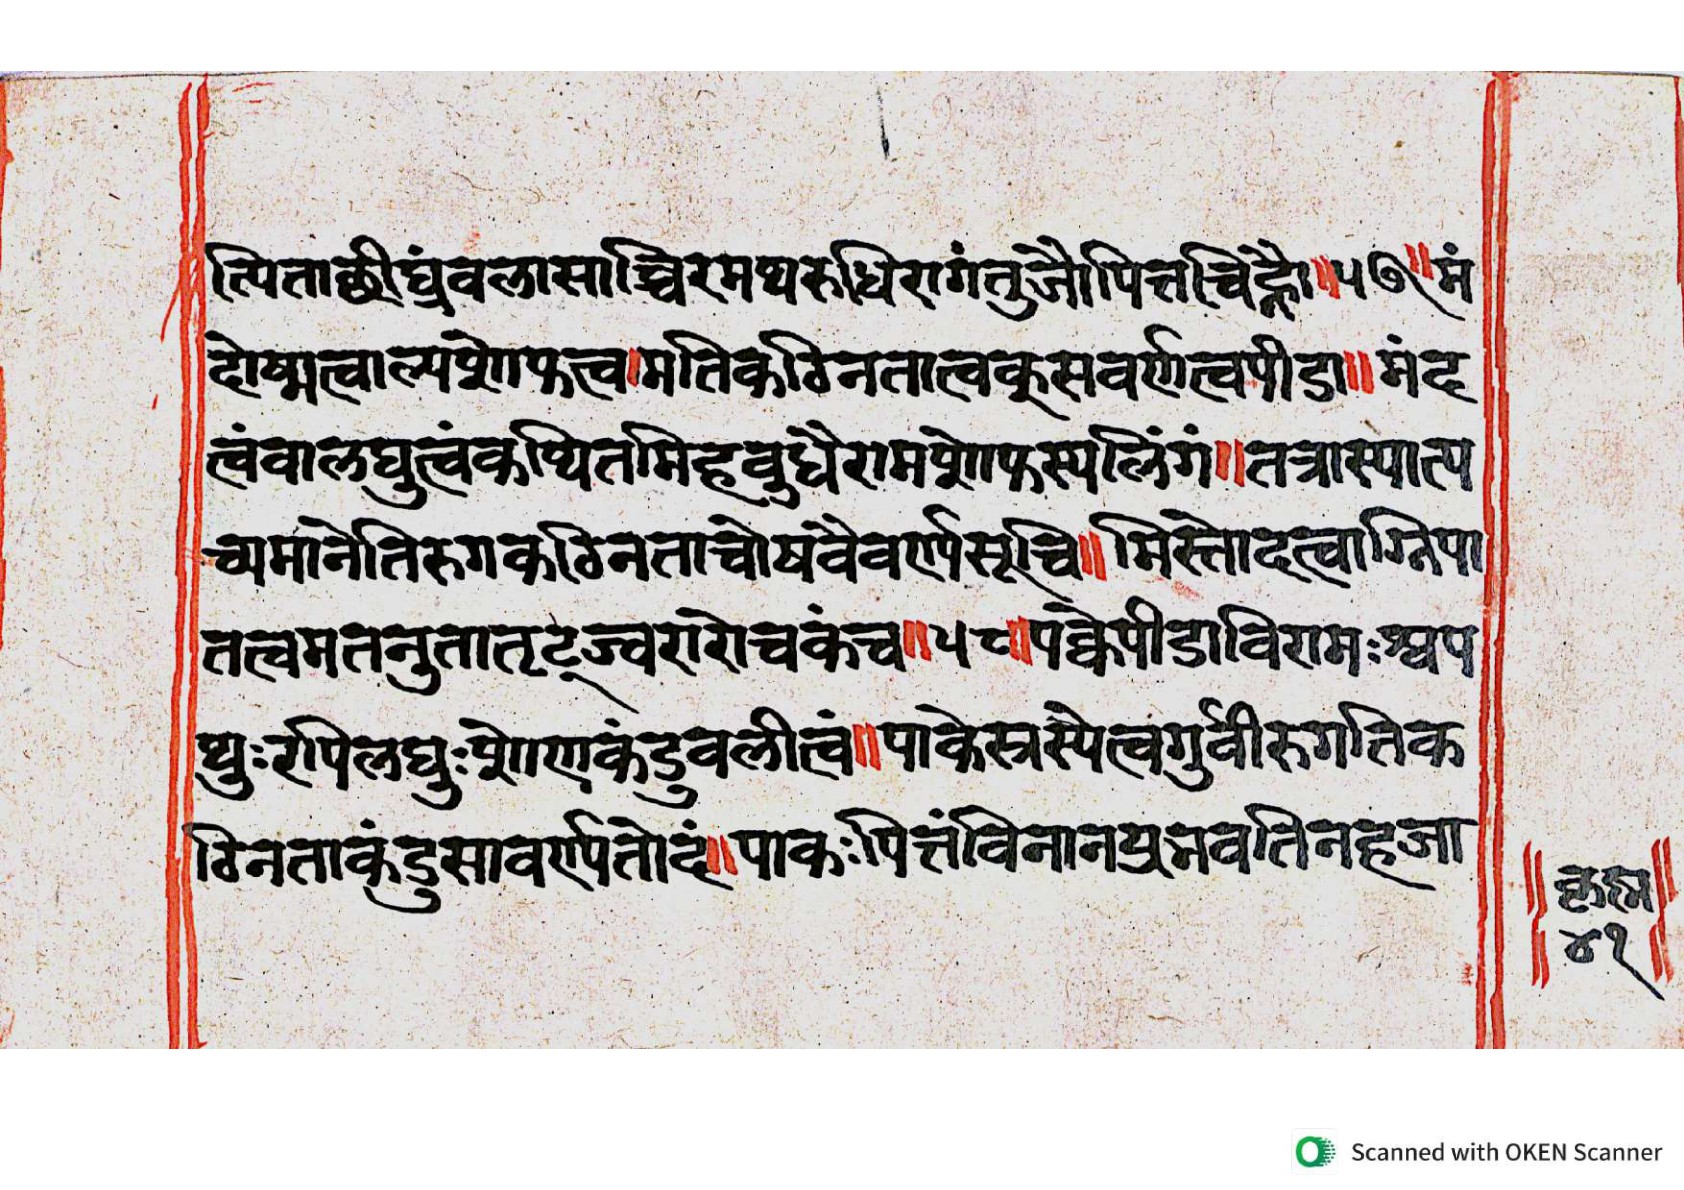 त्पिताछीघ्रंवलासाच्चिरमथरुधिरागंतुजौपित्तचिंह्नौ॥५७॥मं
दोष्मत्वाल्पशोफत्व।मतिकठिनतात्वक्सवर्णत्वपीडा॥मंद
त्वंवालघुत्वंकथितमिहवुधैरामशोफस्यलिंगं॥तत्रास्यात्प
च्यमानेतिरुगकठिनताचोषवैवर्ण्यसूचि॥मिस्तोदत्वाग्निपा
तत्वमतनुतातृट्ज्वरारोचकंच॥५८॥पक्वेपीडाविरामःश्वप
थुःरपिलघुःशोणकंडुवलीत्वं॥पाकेस्त्रस्यैत्वगुर्वीरुगतिक
ठिनताकंडुसावर्ण्यतोदं॥पाकःपित्तंविनानप्रभवतिनहजा
४१
Scanned with OKEN Scanner